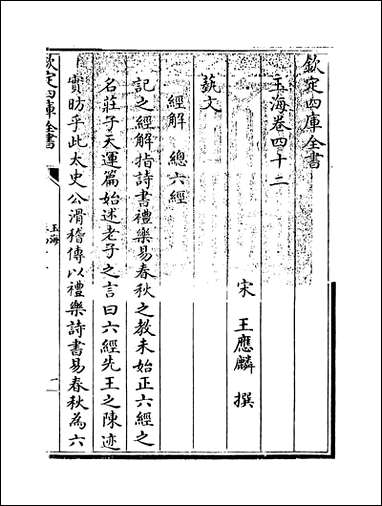 欽定四庫全書
玉海卷四十二
宋 王應麟 撰
藝文
經解 總六經
記之經解指詩書禮樂易春秋之教未始正六經之
名莊子天運篇始述老子之言曰六經先王之陳迹
實昉乎此太史公滑稽傳以禮樂詩書易春秋為六
欽定四庫全書
玉海